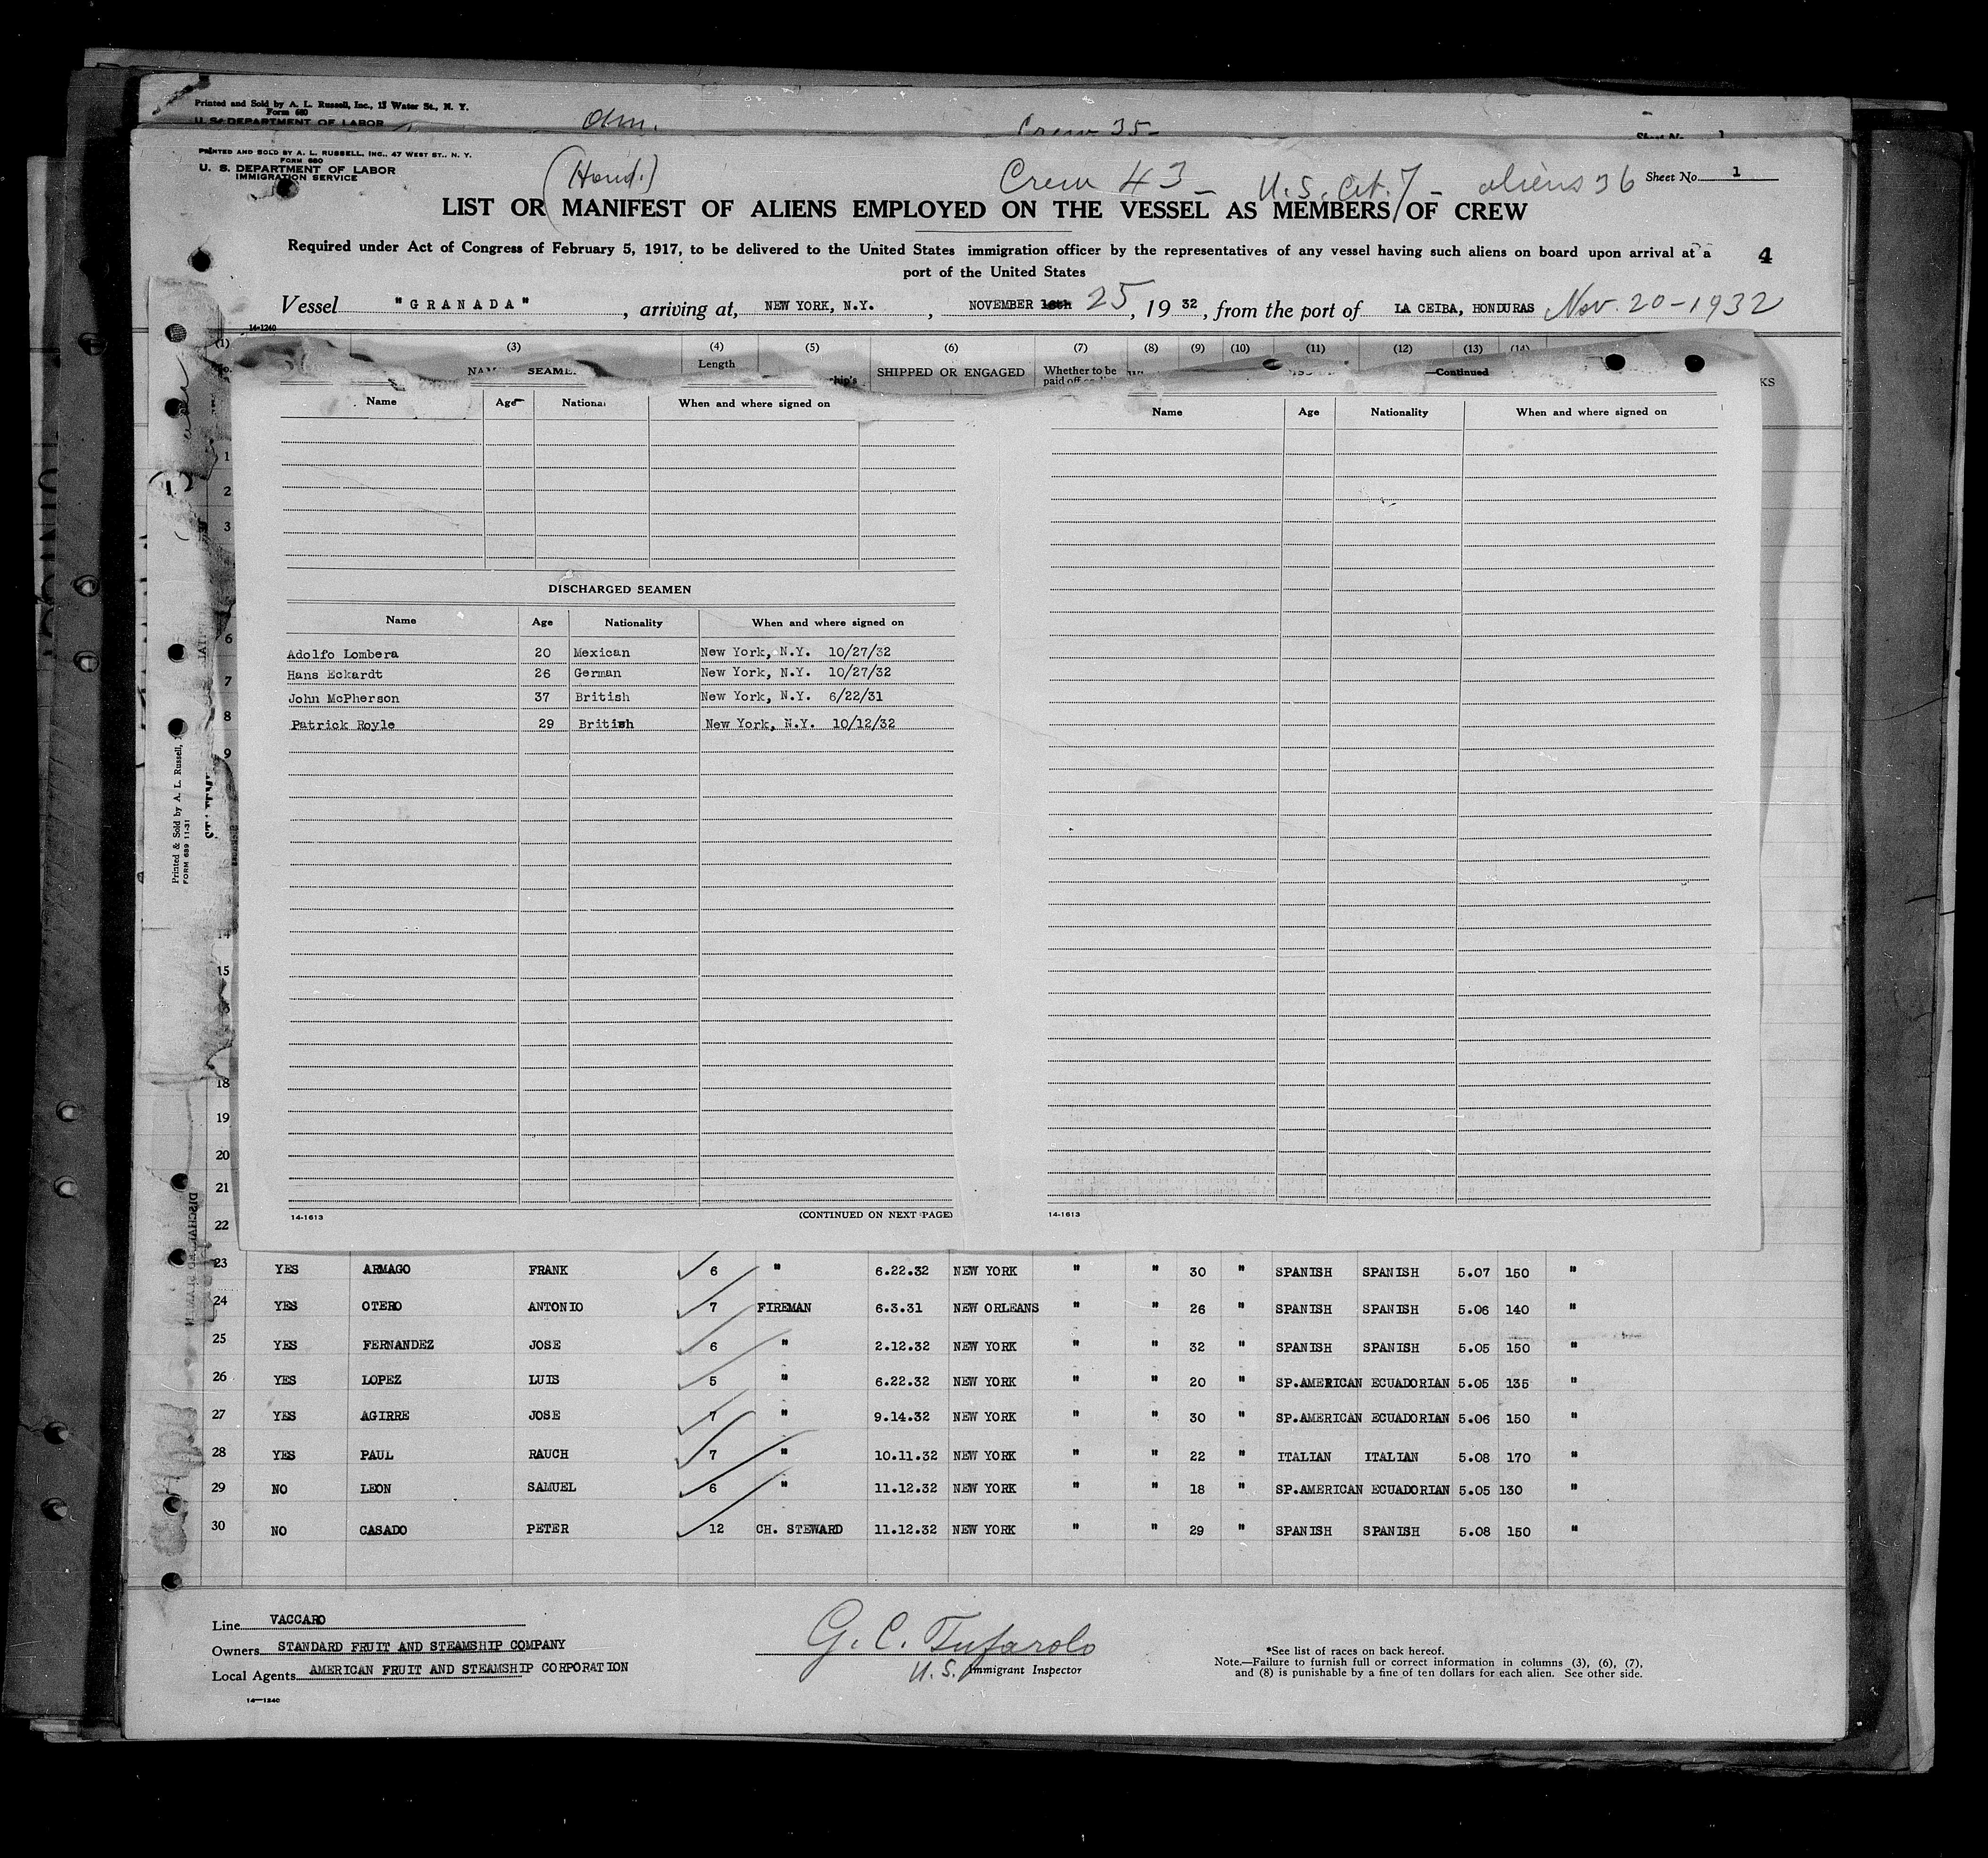 Printed and Sold by A. L. Russell, Inc., 13 Water St., N. Y.
Form 680
U. S. DEPARTMENT OF LABOR
Crew 35-
PRINTED AND SOLD BY A. L. RUSSELL, INC., 47 WEST ST., N. Y.
FORM 680
U. S. DEPARTMENT OF LABOR
IMMIGRATION SERVICE
(Hond.) Crew 43 - U.S. Cit. 7 - aliens 36 Sheet No. 1
LIST OR MANIFEST OF ALIENS EMPLOYED ON THE VESSEL AS MEMBERS OF CREW
Required under Act of Congress of February 5, 1917, to be delivered to the United States immigration officer by the representatives of any vessel having such aliens on board upon arrival at a
port of the United States
4
Vessel "GRANADA", arriving at, NEW YORK, N.Y., NOVEMBER 16th 25, 1932, from the port of LA CEIBA, HONDURAS Nov. 20-1932
14-1240
(1) (3) (4) (5) (6) (7) (8) (9) (10) (11) (12) (13) (14)
Length SHIPPED OR ENGAGED Whether to be —Continued
Name Age National When and where signed on
Name Age Nationality When and where signed on
DISCHARGED SEAMEN
Name Age Nationality When and where signed on
Adolfo Lombera 20 Mexican New York, N.Y. 10/27/32
Hans Eckardt 26 German New York, N.Y. 10/27/32
John McPherson 37 British New York, N.Y. 6/22/31
Patrick Royle 29 British New York, N.Y. 10/12/32
1
2
3
6
7
8
9
14
15
18
19
20
21
22
Printed & Sold by A. L. Russell,
FORM 689 11-31
14-1613 (CONTINUED ON NEXT PAGE)
14-1613
23 YES ARMAGO FRANK 6 " 6.22.32 NEW YORK " " 30 " SPANISH SPANISH 5.07 150 "
24 YES OTERO ANTONIO 7 FIREMAN 6.3.31 NEW ORLEANS " " 26 " SPANISH SPANISH 5.06 140 "
25 YES FERNANDEZ JOSE 6 " 2.12.32 NEW YORK " " 32 " SPANISH SPANISH 5.05 150 "
26 YES LOPEZ LUIS 5 " 6.22.32 NEW YORK " " 20 " SP.AMERICAN ECUADORIAN 5.05 135 "
27 YES AGIRRE JOSE 7 " 9.14.32 NEW YORK " " 30 " SP.AMERICAN ECUADORIAN 5.06 150 "
28 YES PAUL RAUCH 7 " 10.11.32 NEW YORK " " 22 " ITALIAN ITALIAN 5.08 170 "
29 NO LEON SAMUEL 6 " 11.12.32 NEW YORK " " 18 " SP.AMERICAN ECUADORIAN 5.05 130 "
30 NO CASADO PETER 12 CH. STEWARD 11.12.32 NEW YORK " " 29 " SPANISH SPANISH 5.08 150 "
Line VACCARO
Owners STANDARD FRUIT AND STEAMSHIP COMPANY
Local Agents AMERICAN FRUIT AND STEAMSHIP CORPORATION
14—1240
G. C. Tufarolo
U.S. Immigrant Inspector
*See list of races on back hereof.
Note.—Failure to furnish full or correct information in columns (3), (6), (7),
and (8) is punishable by a fine of ten dollars for each alien. See other side.